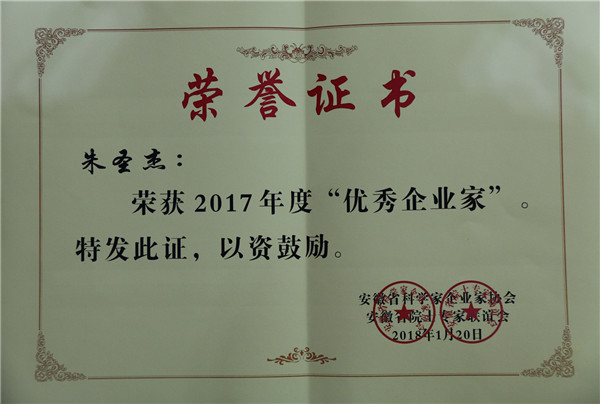 荣誉证书
朱圣杰：
荣获2017年度“优秀企业家”。
特发此证，以资鼓励。
安徽省科学家企业家协会
安徽省院士专家联谊会
2018年1月20日